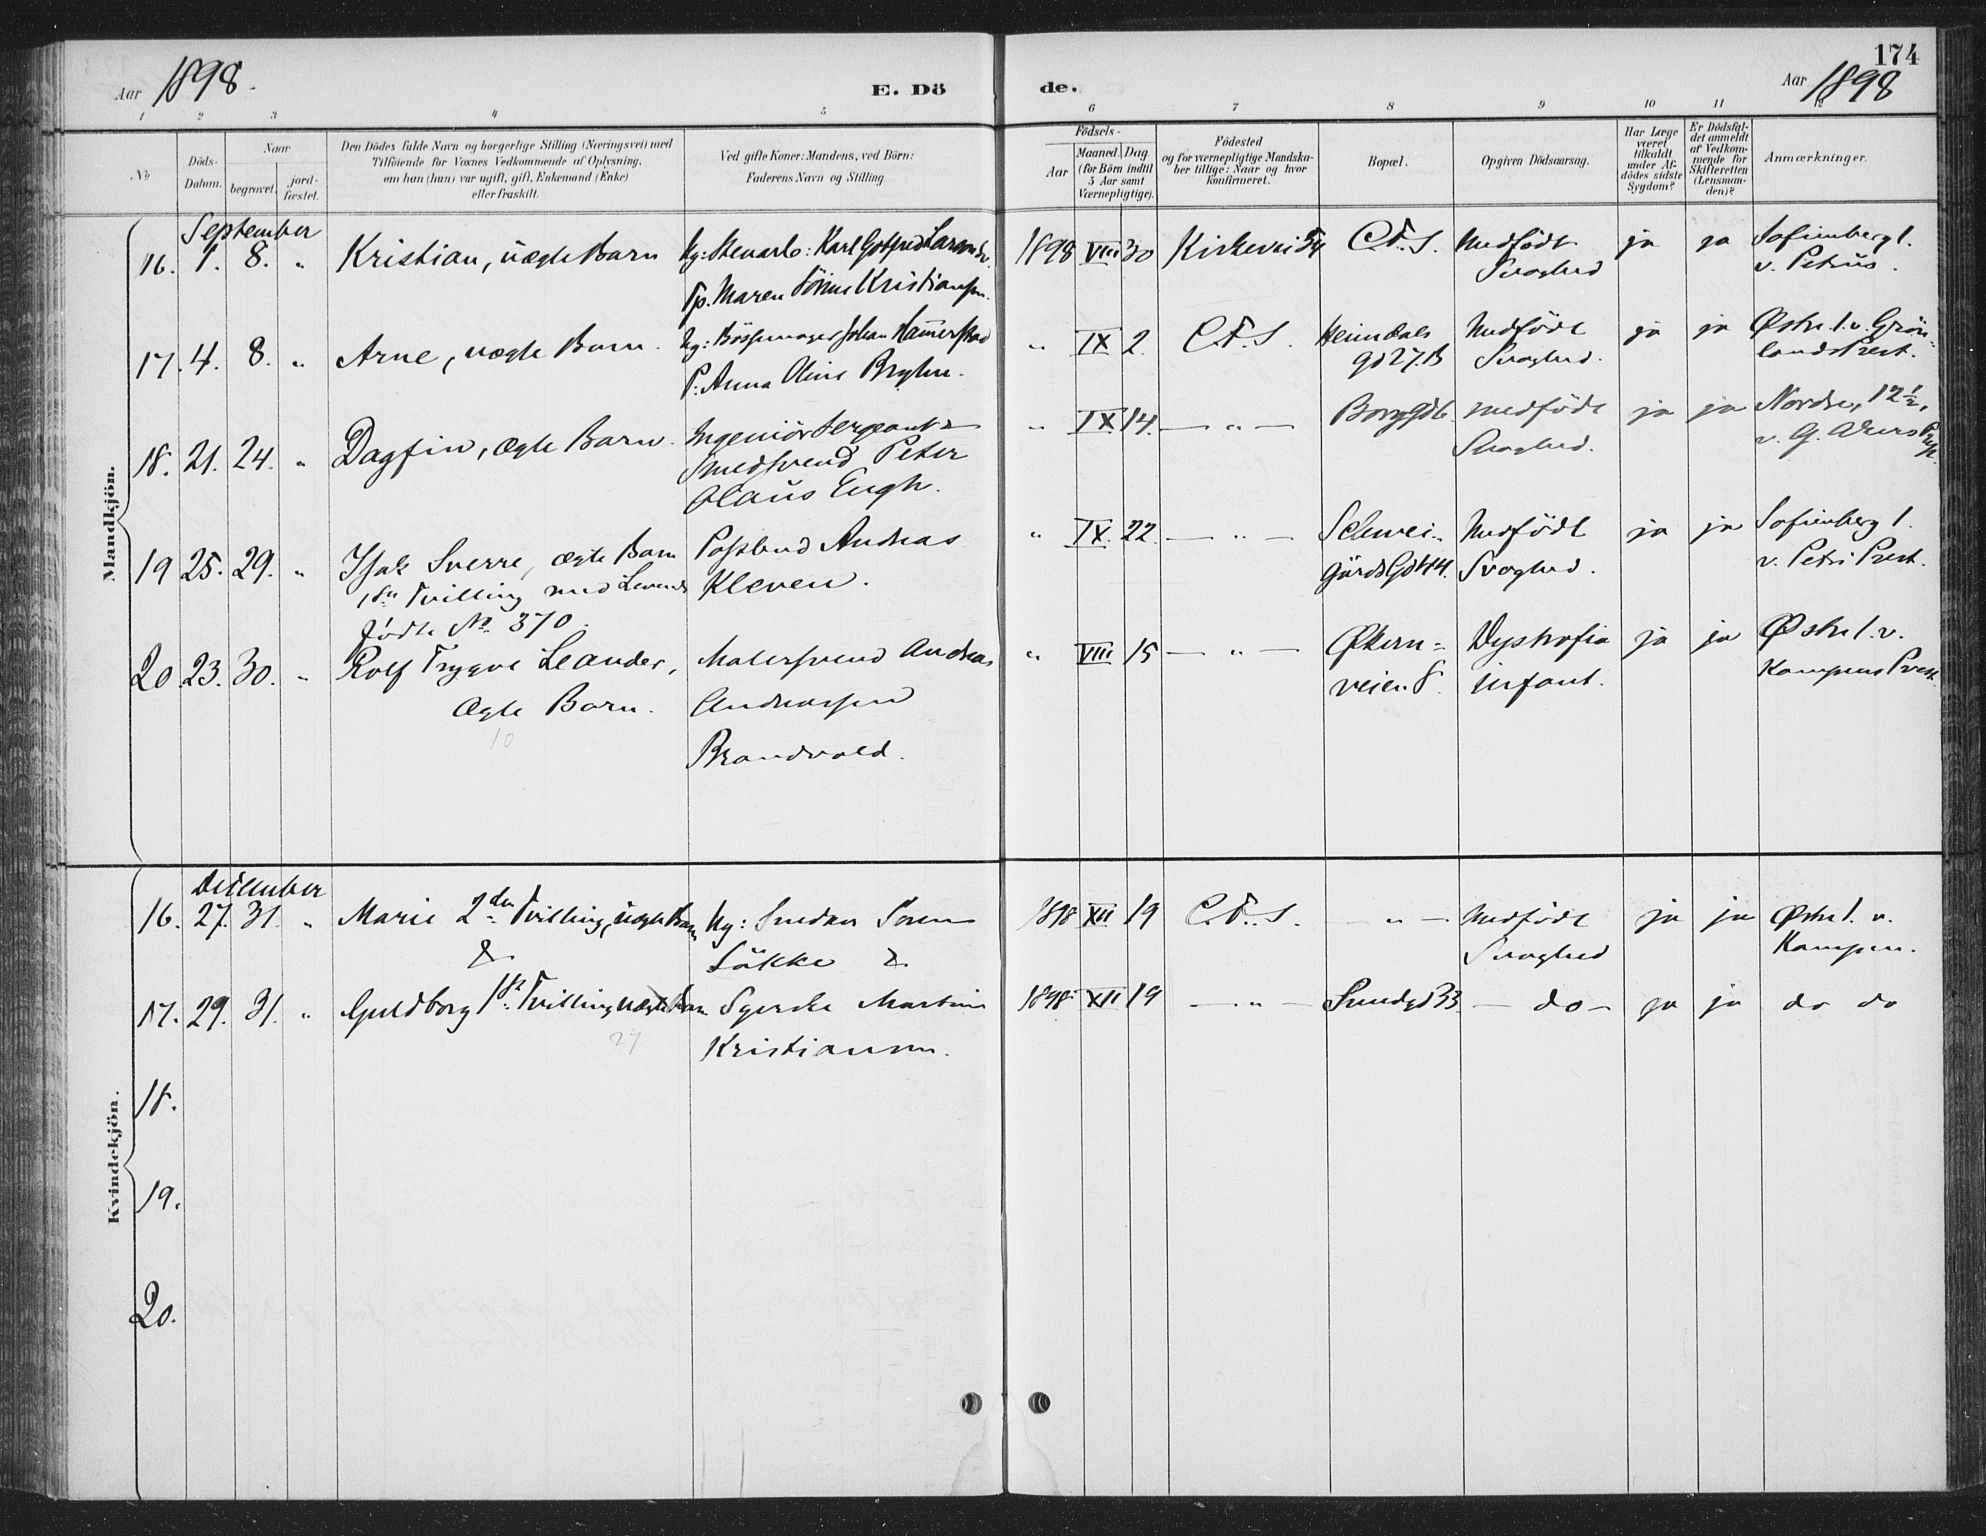 174
Aar 1898.
E. Dö
de.
Aar 1898
1 2 3 4 5 6 7 8 9 10 11 12
№
Döds-
Datum.
Naar
begravet.
jord-
fæstet.
Den Dödes fulde Navn og borgerlige Stilling (Næringsvei) med
Tilföiende for Voxnes Vedkommende af Oplysning,
om han (hun) var ugift, gift, Enkemand (Enke)
eller fraskilt.
Ved gifte Koner: Mandens, ved Börn:
Faderens Navn og Stilling
Födsels-
Aar
Maaned Dag
(for Börn indtil
5 Aar samt
Værnepligtige).
Födested
og for værnepligtige Mandska-
ber tillige: Naar og hvor
konfirmeret.
Bopæl.
Opgiven Dödsaarsag.
Har Læge
været
tilkaldt
under Af-
dödes sidste
Sygdom?
Er Dödsfal-
det anmeldt
af Vedkom-
mende for
Skifteretten
(Lensman-
den)?
Anmærkninger.
Mandkjön.
September
16. 1. 8. " Kristian, uægte Barn Karl Gotfred 1898 VIII 30 Kirkevei 54 C.F.S. Medfödt ja ja Sofienberg 1.
Maren Kristiansen. Svaghed v. Petrus.
17. 4. 8. " Arne, uægte Barn. Ug: Johan " IX 2. C.F.S. Heimdals Medfödt ja ja Østre 1. v. Grön-
P. Anna Oline Bryhn. gd 27.B Svaghed. lands Prest.
18. 21. 24. " Dagfin, ægte Barn. Ingeniörsergeant & " IX 14. — " — Borggd 6 medfödt ja ja Nordre, 12 1/2,
Smedsvend Peter Svaghed. v. G. Akers Prest.
Olaus Engh.
19 25. 29. " Isak Sverre, ægte Barn Andreas " IX. 22. — " — Schwei- Medfödt ja ja Sofienberg 1.
1ste Tvilling med Levende Kleven. gårds Gd 44. Svaghed. v. Petri Prest.
födte № 370.
20. 23. 30. " Rolf Trygve Leander, Malersvend Andreas " VIII 15 — " — Økern- Dystrofia ja ja Østre 1. v.
Ægte Barn. Andreassen veien 8. infant. Kampens Prest.
10
Brandvold.
Kvindekjön.
December
16. 27. 31. " Marie 2den Tvilling, uægte Barn Ug: Smeden 1898 XII 19 C.F.S. " — Medfödt ja ja Østre 1. v.
& Lökke & Svaghed Kampen.
17. 29. 31. " Guldborg 1ste Tvilling, uægte Barn Syerske Martine 1898 XII 19 — " — Smedgd 33. — do — ja ja do do
27 Kristiansen.
18.
19.
20.